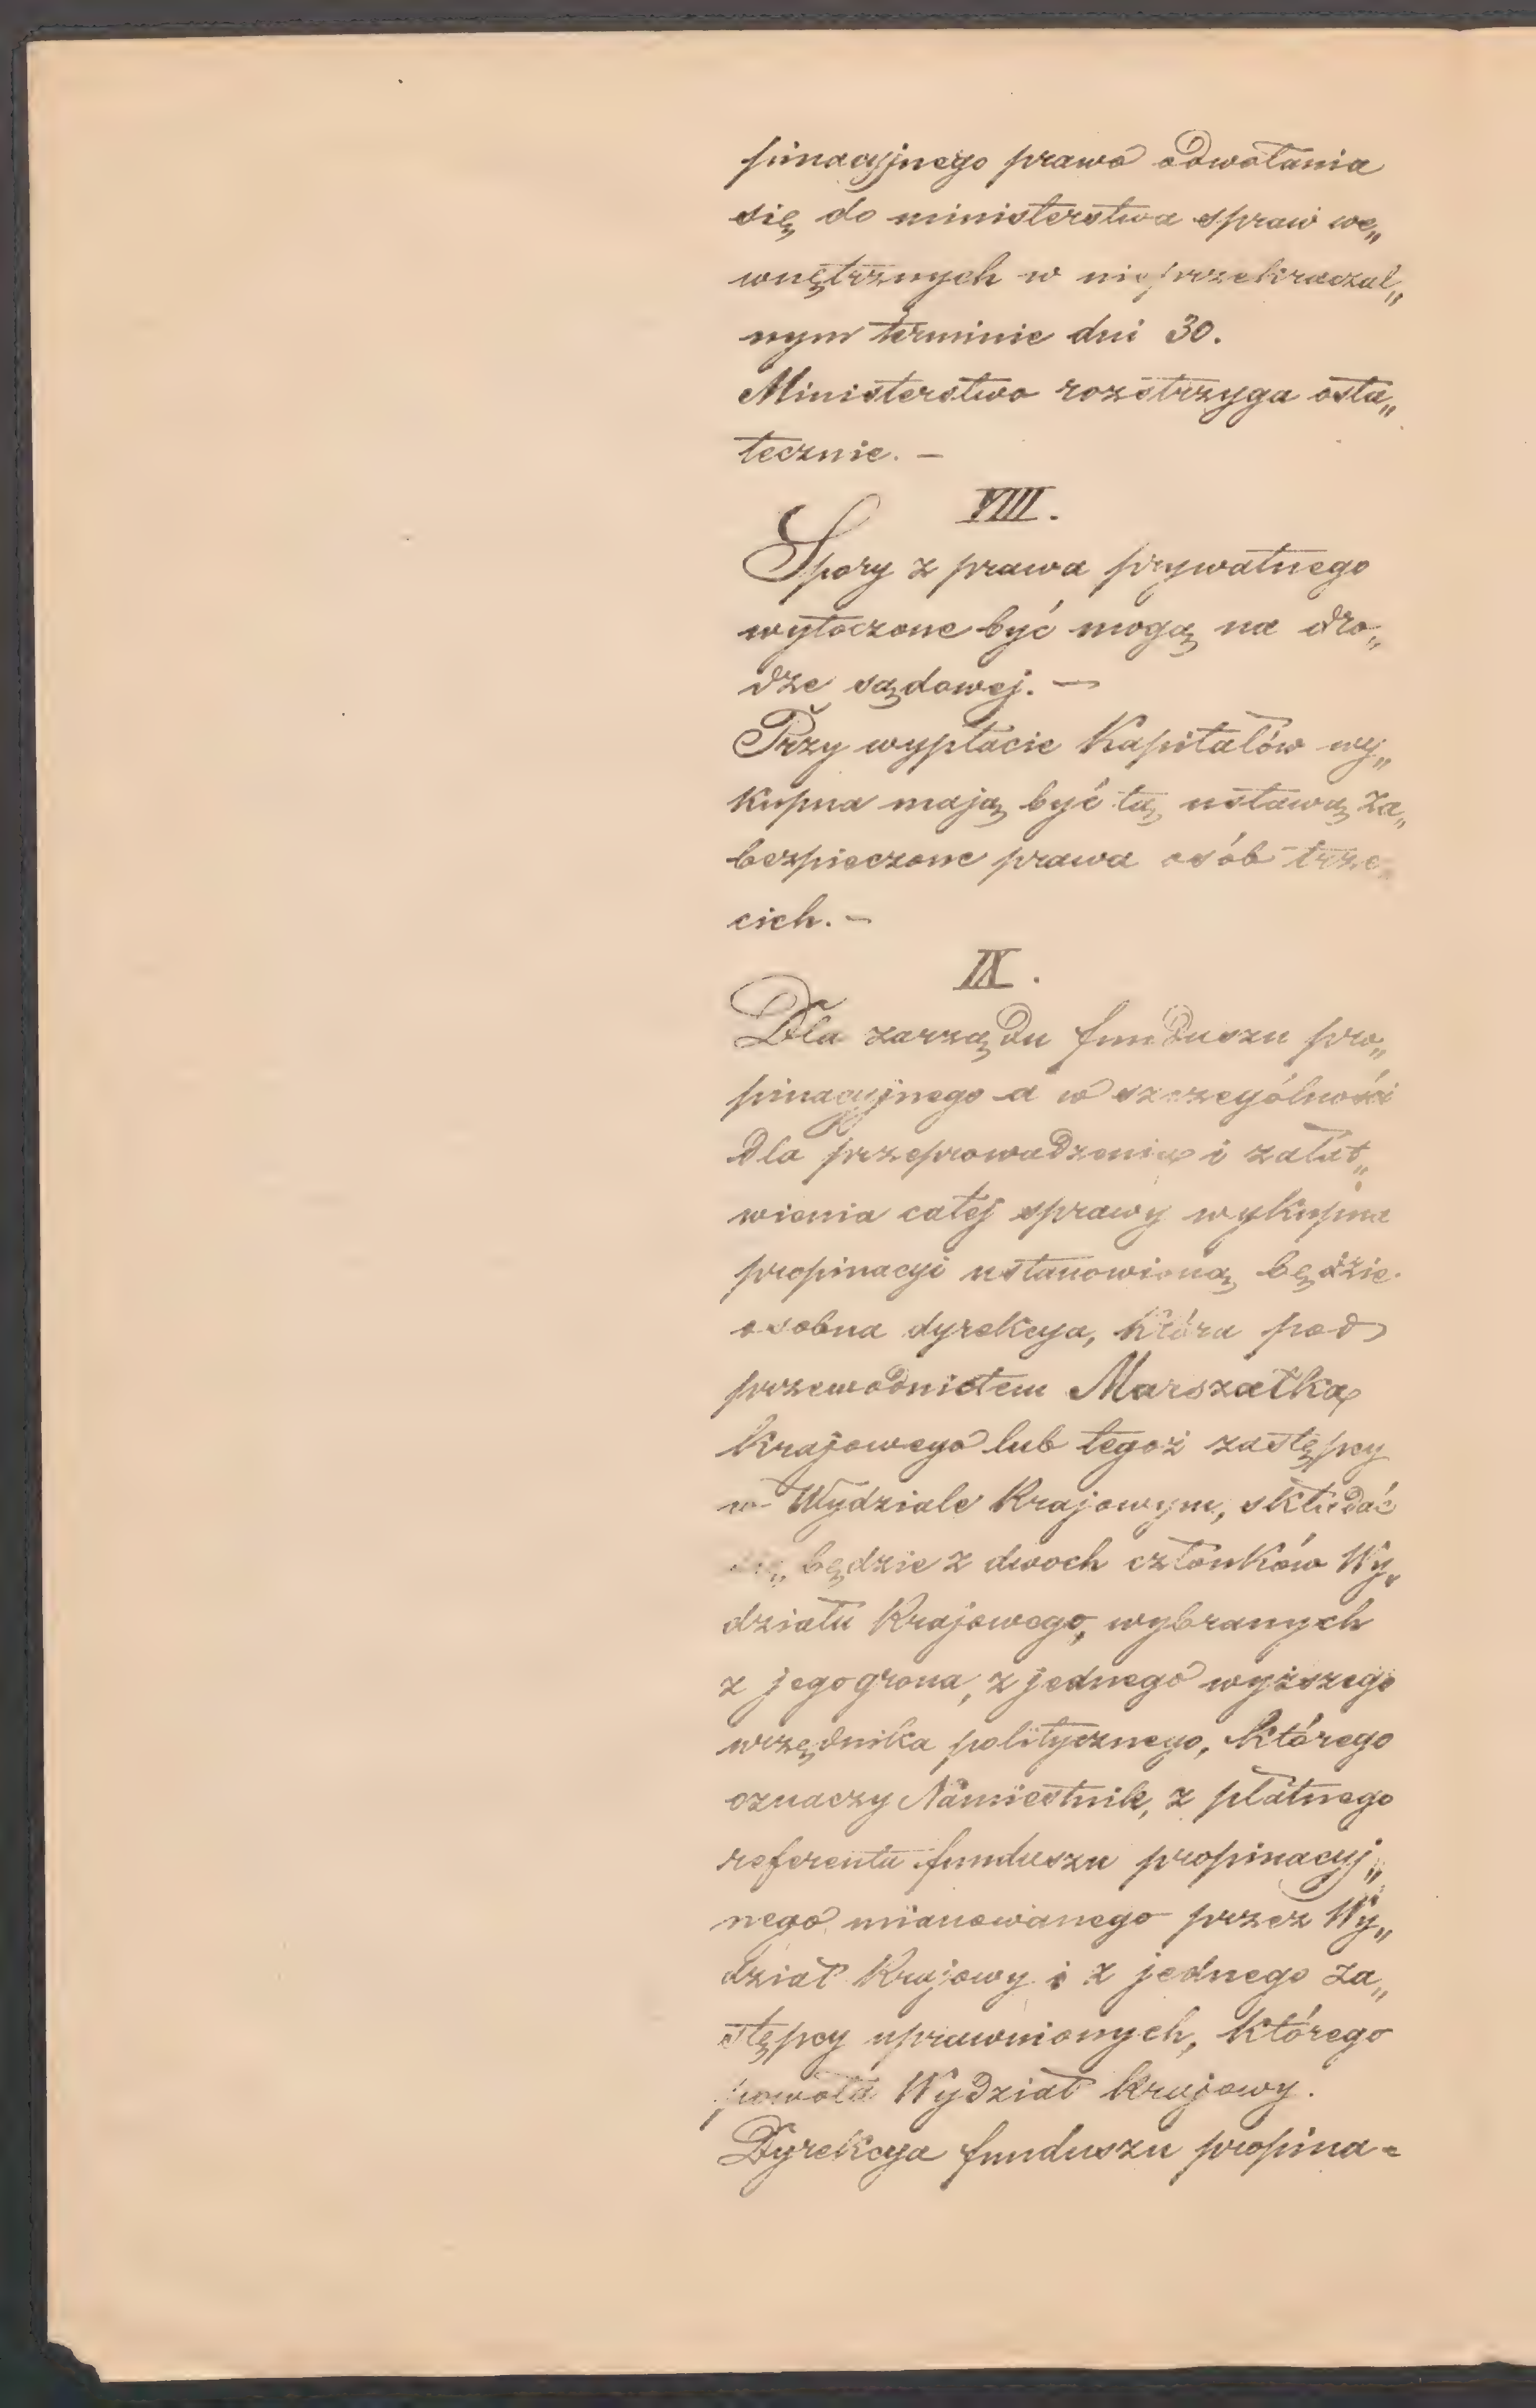 pinacyjnego prawo odwołania
się do ministerstwa spraw we„
wnętrznych w nieprzekraczal„
nym terminie dni 30.
Ministerstwo rozstrzyga osta„
tecznie. —
VIII.
Spory z prawa prywatnego
wytoczone być mogą na dro„
dze sądowej. —
Przy wypłacie Kapitałów wy„
kupna mają być tą ustawą za„
bezpieczone prawa osób trze„
cich. —
IX.
Dla zarządu funduszu pro„
pinacyjnego a w szczególności
dla przeprowadzenia i załat„
wienia całej sprawy wykupna
propinacyi ustanowioną będzie
osobna dyrekcya, która pod
przewodnictem Marszałka
Krajowego lub tegoż zastępcy
w Wydziale Krajowym, składać
się będzie z dwoch członków Wy„
działu Krajowego, wybranych
z jego grona, z jednego wyższego
urzędnika politycznego, którego
oznaczy Namiestnik, z płatnego
referenta funduszu propinacyj„
nego mianowanego przez Wy„
dział Krajowy i z jednego za„
stępcy uprawnionych, którego
powoła Wydział krajowy.
Dyrekcya funduszu propina=